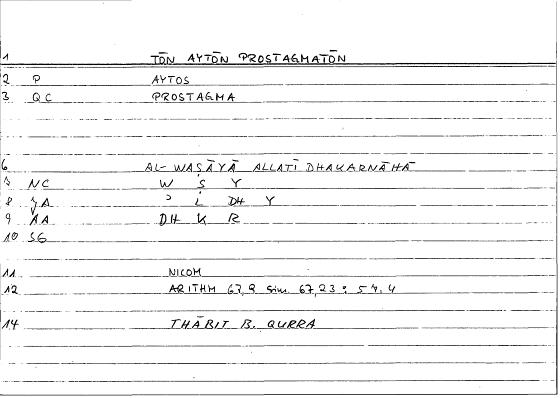 1 TŌN AYTŌN PROSTAGMATŌN
2 P AYTOS
3 QC PROSTAGMA
6 AL-WAṢĀYĀ ALLATĪ DHAKARNĀHĀ
7 NC W Ṣ Y
8 ʾ L DH Y
9 AA DH K R
10 SG
11 NICOM
12 ARITHM 67,9 sim. 67,23 ; 54,4
14 THĀBIT B. QURRA